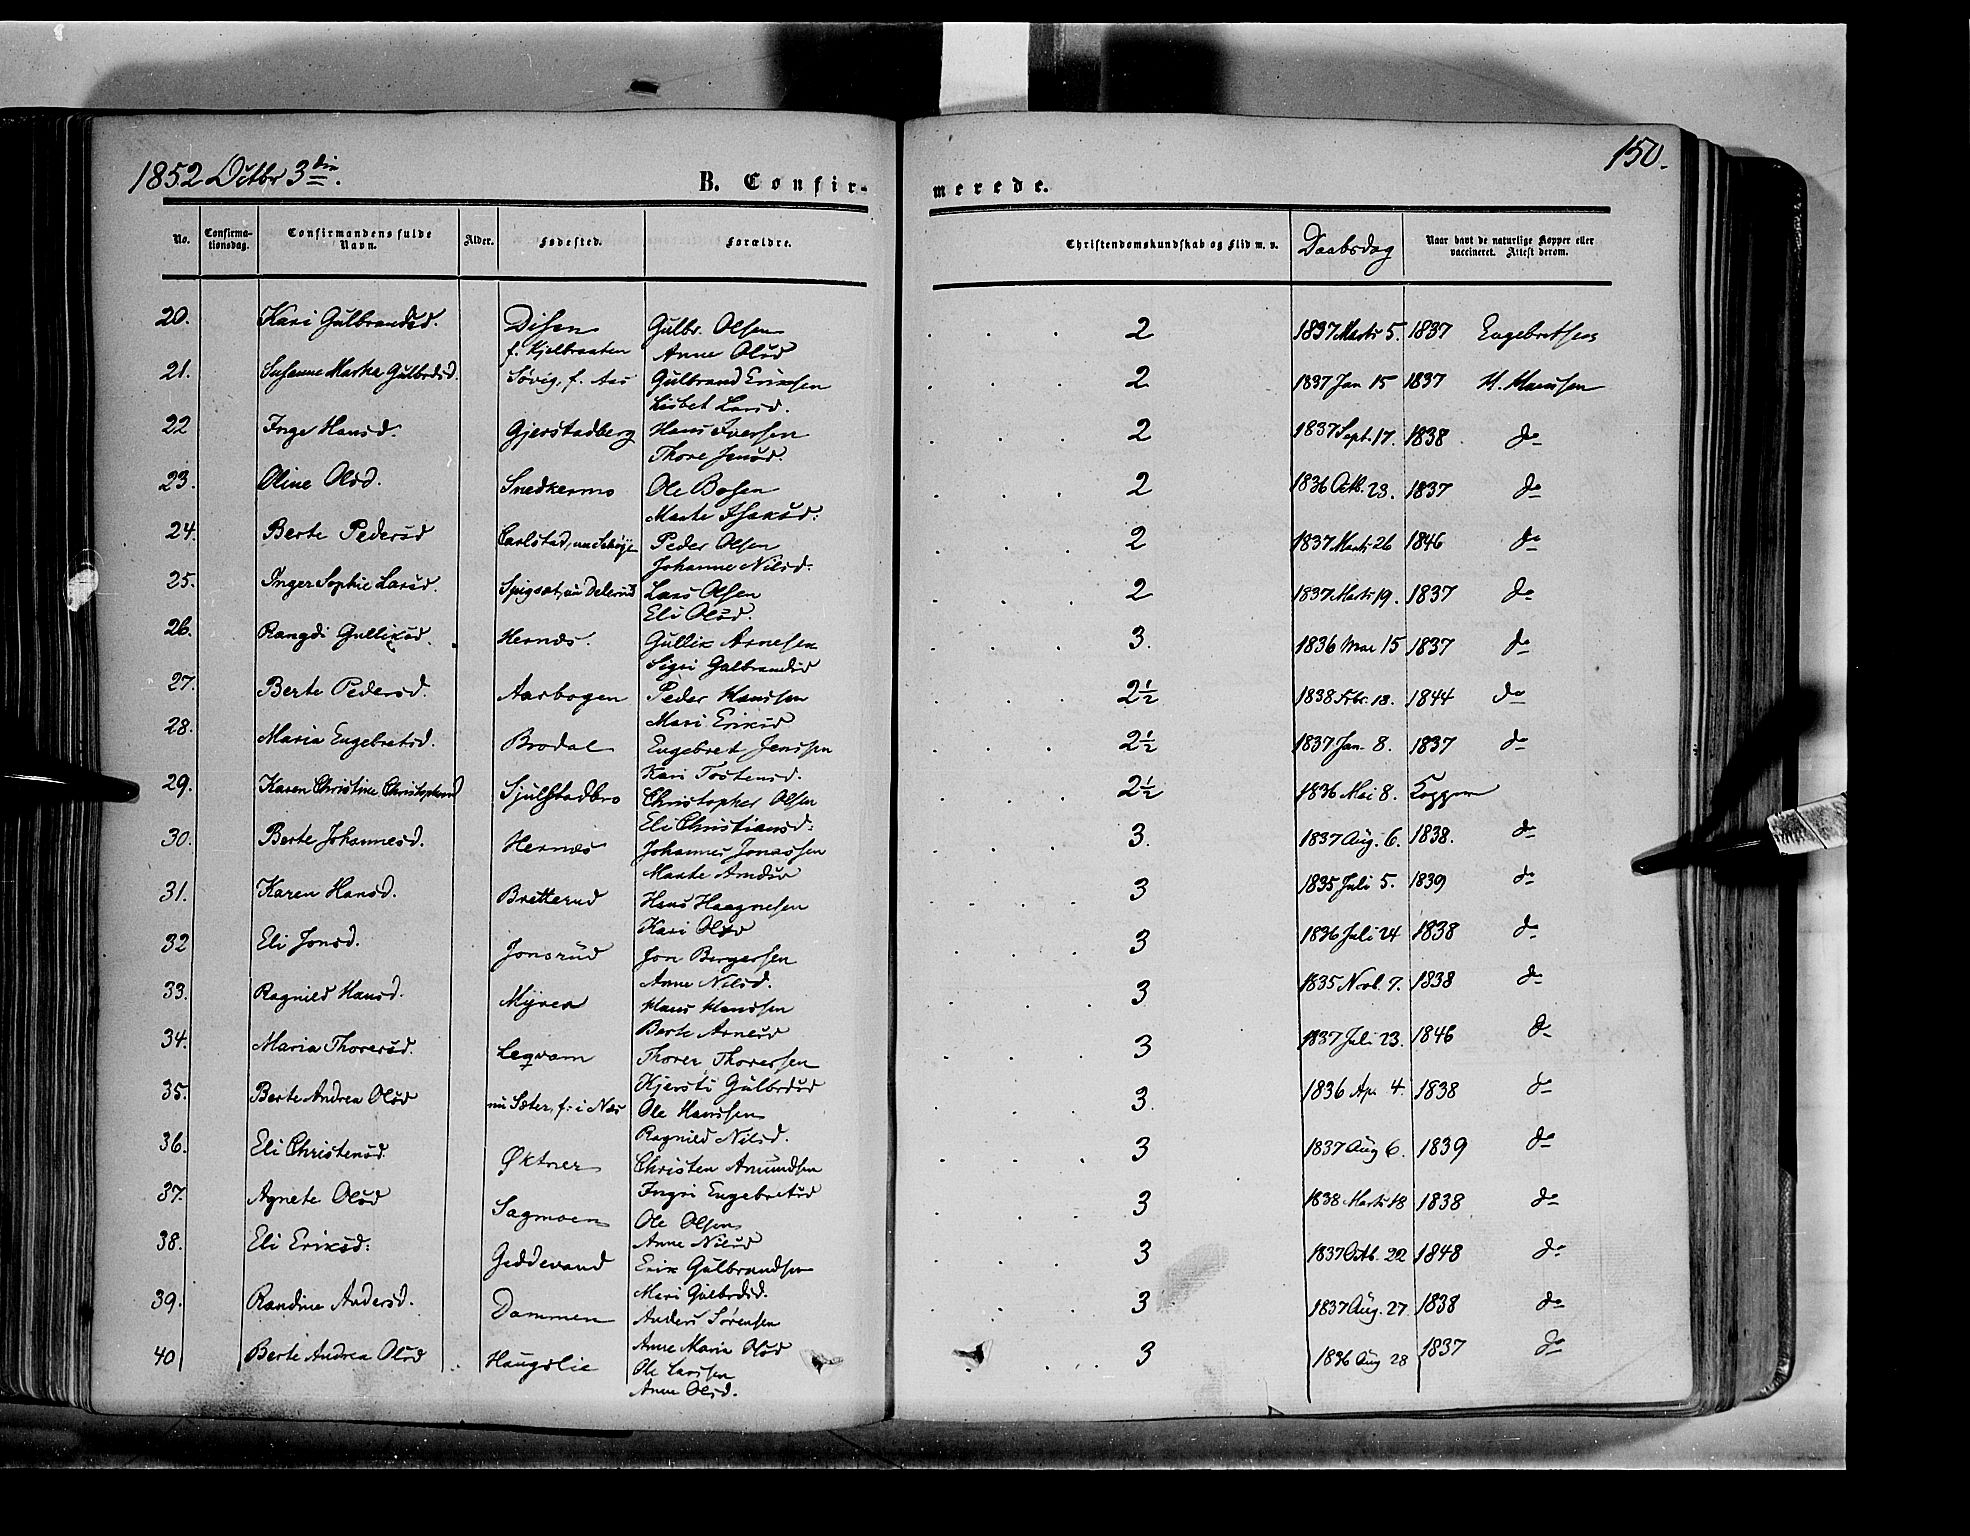 1852 Octbr 3die.
150.
B. Confir-
merede.
No. Confirmationsdag. Confirmandens fulde Navn. Alder. Fødested. Forældre. Christendomskundskab og Flid m. v. Daabsdag Naar havt de naturlige Kopper eller vaccineret. Attest derom.
20. Kari Gulbrandsd. Disen Gulbr. Olsen 2 1837 Marts 5. 1837 Engebretsen
f. Kjelbraaten Anne Olsd
21. Susanne Marthe Gulbrdsd. Sörig, f. Aas Gulbrand Eriksen 2 1837 Jan 15 1837 H. Hansen
Lisbet Larsd.
22 Inge Hansd. Gjerstadberg Hans Iversen 2 1837 Sept. 17. 1838 do
Thore Jensd.
23. Oline Olsd. Snedkermo Ole Bosen 2 1836 Octb. 23. 1837 do
Marte Isaksd:
24. Berte Pedersd Carlstad, Peder Olsen 2 1837 Marts 26 1846 do
Johanne Nilsd:
25. Inger Sophie Larsd. Lars Olsen 2 1837 Marts 19. 1837 do
Eli Olsd.
26. Rangdi Gulliksd. Hernæs. Gullik Arnesen 3. 1836 Mai 15 1837 do
Sigri Gulbrandsd
27. Berte Pedersd. Aasbogen Peder Hanssen 2½ 1838 Febr. 18. 1844 do
Mari Eriksd
28. Maria Engebretsd. Brodal Engebret Jenssen 2½ 1837 Jan. 8. 1837 do
Kari Tostensd.
29. Karen Christine Christophersd Sjulstadbro Christopher Olsen 2½ 1836 Mai 8. Kopper
Eli Christiansd:
30. Berte Johannesd. Hernæs Johannes Jonassen 3. 1837 Aug. 6. 1838. do
Marte Amdsd
31. Karen Hansd. Bretterud Hans Haagnesen 3 1835 Juli 5. 1839 do
Kari Olsd
32 Eli Jonsd. Jonsrud Jon Bergersen 3 1836 Juli 24 1838 do
Anne Nilsd.
33. Ragnild Hansd. Myrer Hans Hanssen 3 1835 Novb. 7. 1838 do
Berte Arnesd
34. Maria Thoresd. Leqvam Thorer Thoressen 3 1837 Juli 23. 1846 do
Kjersti Gulbrdsd
35. Berte Andrea Olsd nu Sæter, f: i Næs Ole Hanssen 3. 1836 Ap. 4. 1838 do
Ragnild Nilsd.
36. Eli Christensd. Øktner Christen Amundsen 3 1837 Aug 6. 1839 do
Ingri Engebretsd
37. Agnete Olsd Sagmoen Ole Olsen 3 1838 Marts 18 1838 do
Anne Nilsd
38. Eli Eriksd: Geddevand Erik Gulbrandsen 3 1837 Octb. 22 1848 do
Mari Gulbrdsd.
39. Randine Andersd. Dammen Anders Sørensen 3 1837 Aug. 27. 1838 do
Anne Maria Olsd
40 Berte Andrea Olsd Haugslie Ole Larssen 3 1836 Aug 28 1837 do
Anne Olsd.